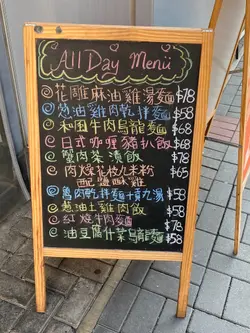 All Day Menu
花雕麻油雞湯麵 $78
葱油雞肉乾拌麵 $58
和風牛肉烏龍麵 $68
日式咖喱豬扒飯 $68
蟹肉菜漬飯 $78
肉燥花枝丸米粉 $65
配鹽酥雞
魯肉乾拌麵+貢丸湯 $58
葱油土雞肉飯 $58
紅燒牛肉麵 $78
油豆腐什菜烏龍麵 $58